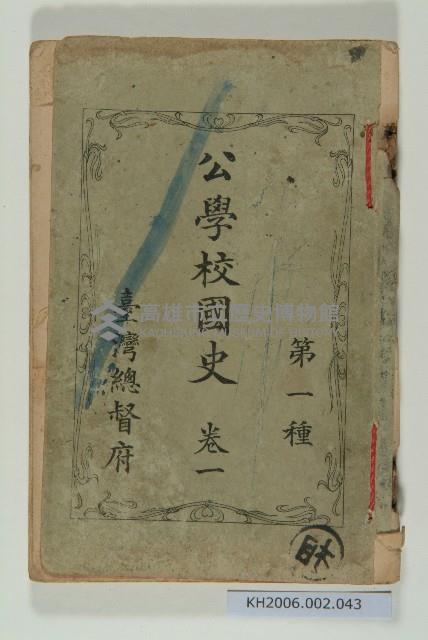 第一種
公學校國史 卷一
臺灣總督府
高雄市立歷史博物館
KAOHSIUNG MUSEUM OF HISTORY
KH2006.002.043